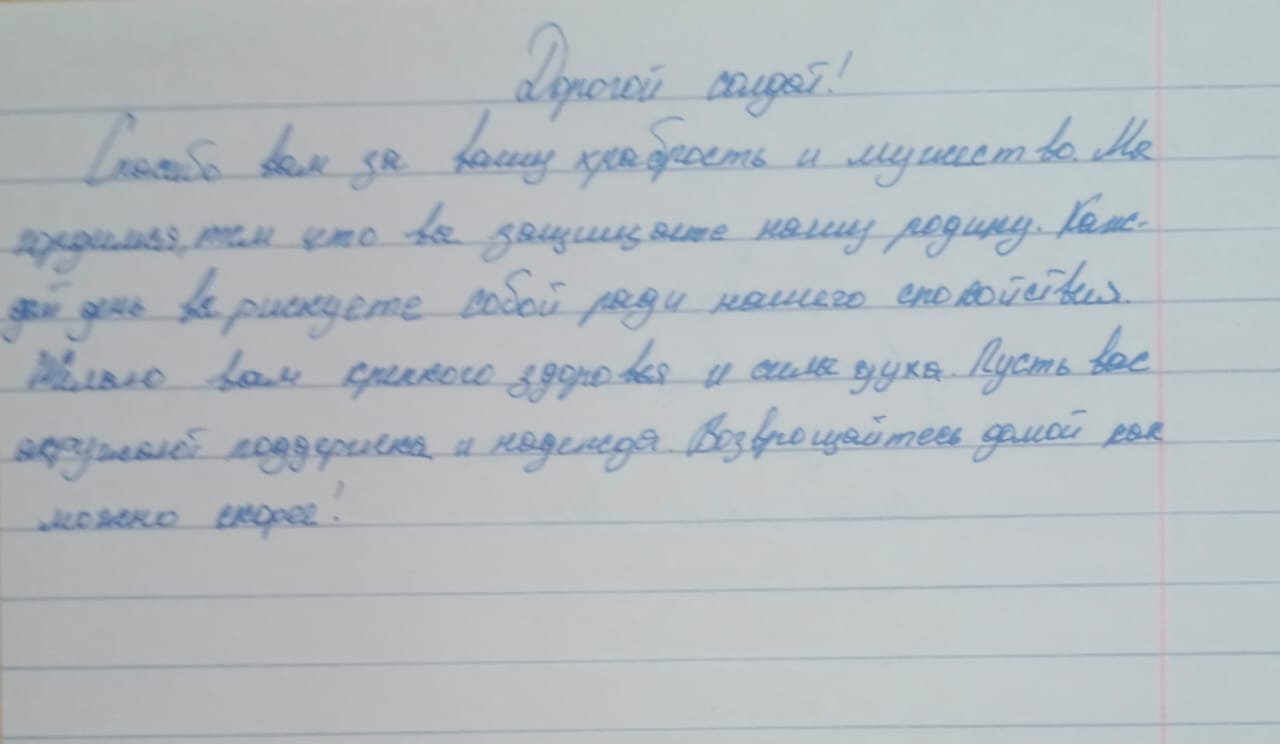 Дорогой солдат!
Спасибо вам за вашу храбрость и мужество. Мы
гордимся, тем что вы защищаете нашу родину. Каж-
дый день вы рискуете собой ради нашего спокойствия.
Желаю вам крепкого здоровья и силы духа. Пусть вас
окружают поддержка и надежда. Возвращайтесь домой как
можно скорее!